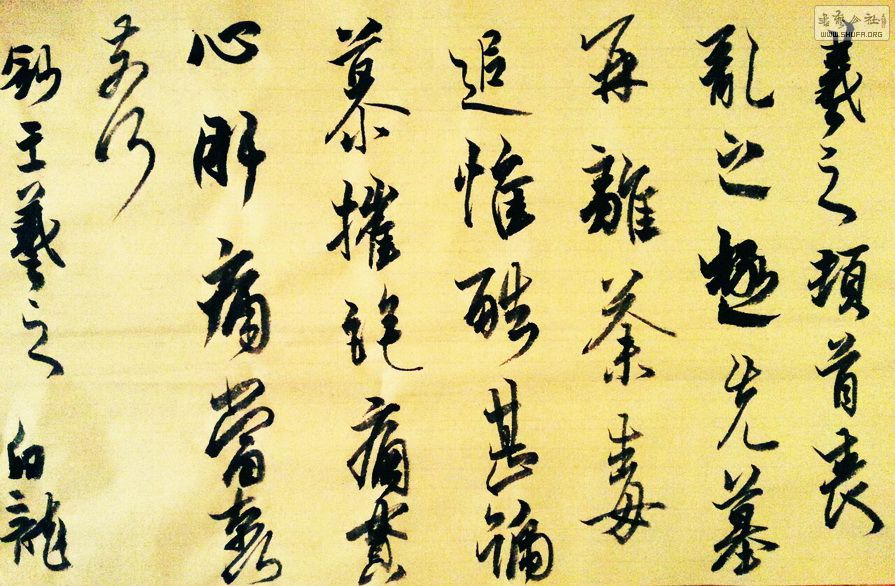 書法公社
WWW.SHUFA.ORG
羲之頓首喪
亂之極先墓
再離荼毒
追惟酷甚號
慕摧絶痛貫
心肝痛當奈何
奈何
王羲之 白龍